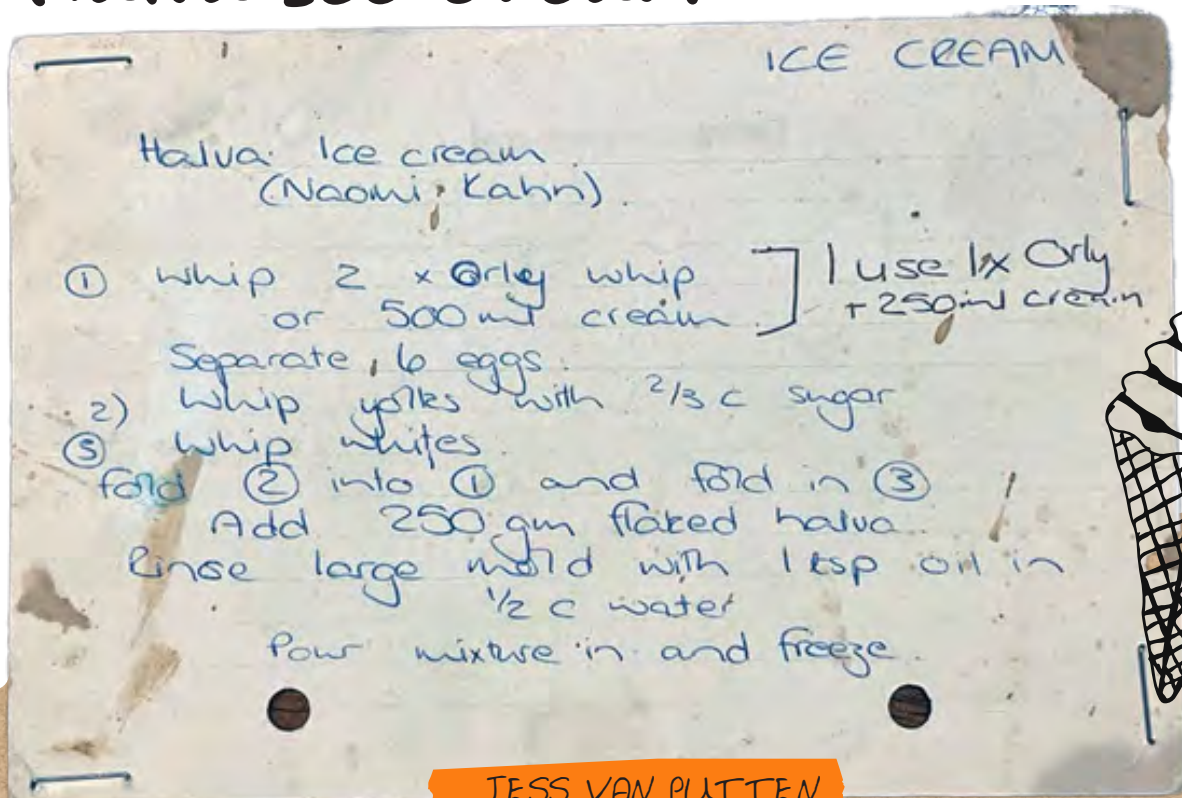 ICE CREAM
Halva Ice cream
(Naomi Kahn).
① Whip 2 x Orley whip
or 500ml cream
] I use 1x Orly
+ 250ml cream
Separate 6 eggs.
2) Whip yolks with 2/3 c sugar
③ Whip whites
fold ② into ① and fold in ③
Add 250 gm flaked halva
Rinse large mold with 1 tsp oil in
1/2 c water
Pour mixture in and freeze.
JESS VAN PUTTEN